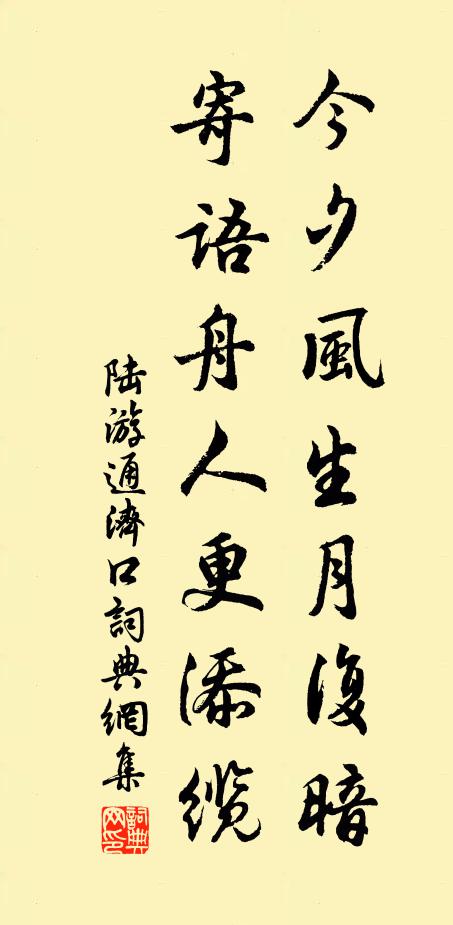 今夕風生月復暗
寄语舟人更添缆
陆游通濟口詞典網集
詞典网印